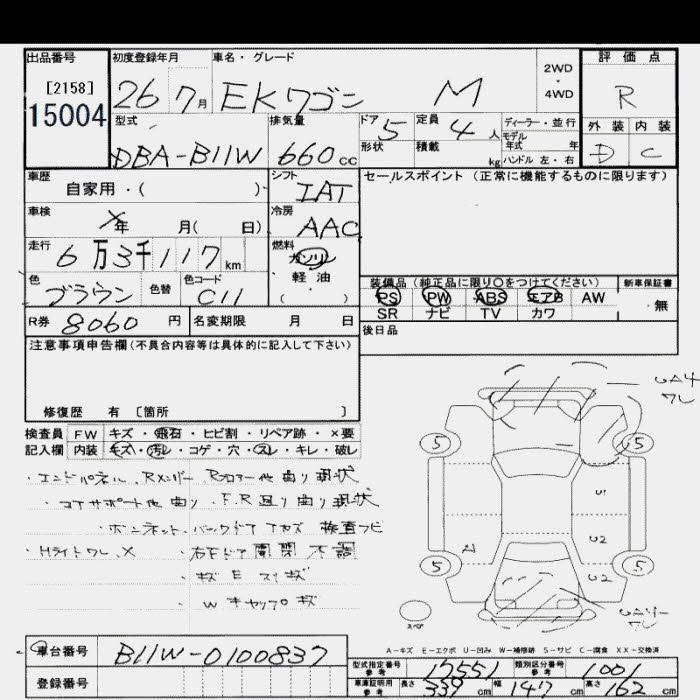 出品番号 初度登録年月 車名・グレード 2WD・4WD 評価点
[2158]
15004 26 7月 EKワゴン M R
型式 排気量 ドア 5 定員 4人 ディーラー・並行 外装 内装
DBA-B11W 660cc 形状 積載 kg モデル年式 年 D C
ハンドル 左・右
車歴 シフト セールスポイント (正常に機能するものに限ります)
自家用・( ) IAT
車検 冷房
X年 月( 日) AAC
走行 燃料
6万3千117km ガソリン
色 色替 色コード 軽油
ブラウン C11 ( )
装備品 (純正品に限り○をつけてください) 新車保証書
PS PW ABS エアB AW ・無
SR ナビ TV カワ
R券 8060円 名変期限 月 日 後日品
注意事項申告欄(不具合内容等は具体的に記入して下さい)
修復歴 有 [箇所 ]
検査員 FW キズ・飛石・ヒビ割・リペア跡・×要
記入欄 内装 キズ・汚レ・コゲ・穴・スレ・キレ・破レ
・エンドパネル、Rメンバー Rフロアー他曲り現状
・コアサポート他曲り・F、R廻り曲り現状
・ボンネット、バックドア 検査ラビ
・Hライトワレ、X ・右Fドア開閉不調
・キズE スリキズ
・Wキャップキズ
UA4
ワレ
5 5
U1
A1 U2
5 U2 5
ワレ
スペア
A-キズ E-エクボ U-凹み W-補修跡 S-サビ C-腐食 XX-交換済
車台番号 B11W-0100837
登録番号
型式指定番号 参考 17551 類別区分番号 参考 1001
車庫証明用 参考 長さ 339cm 幅 147cm 高さ 162cm